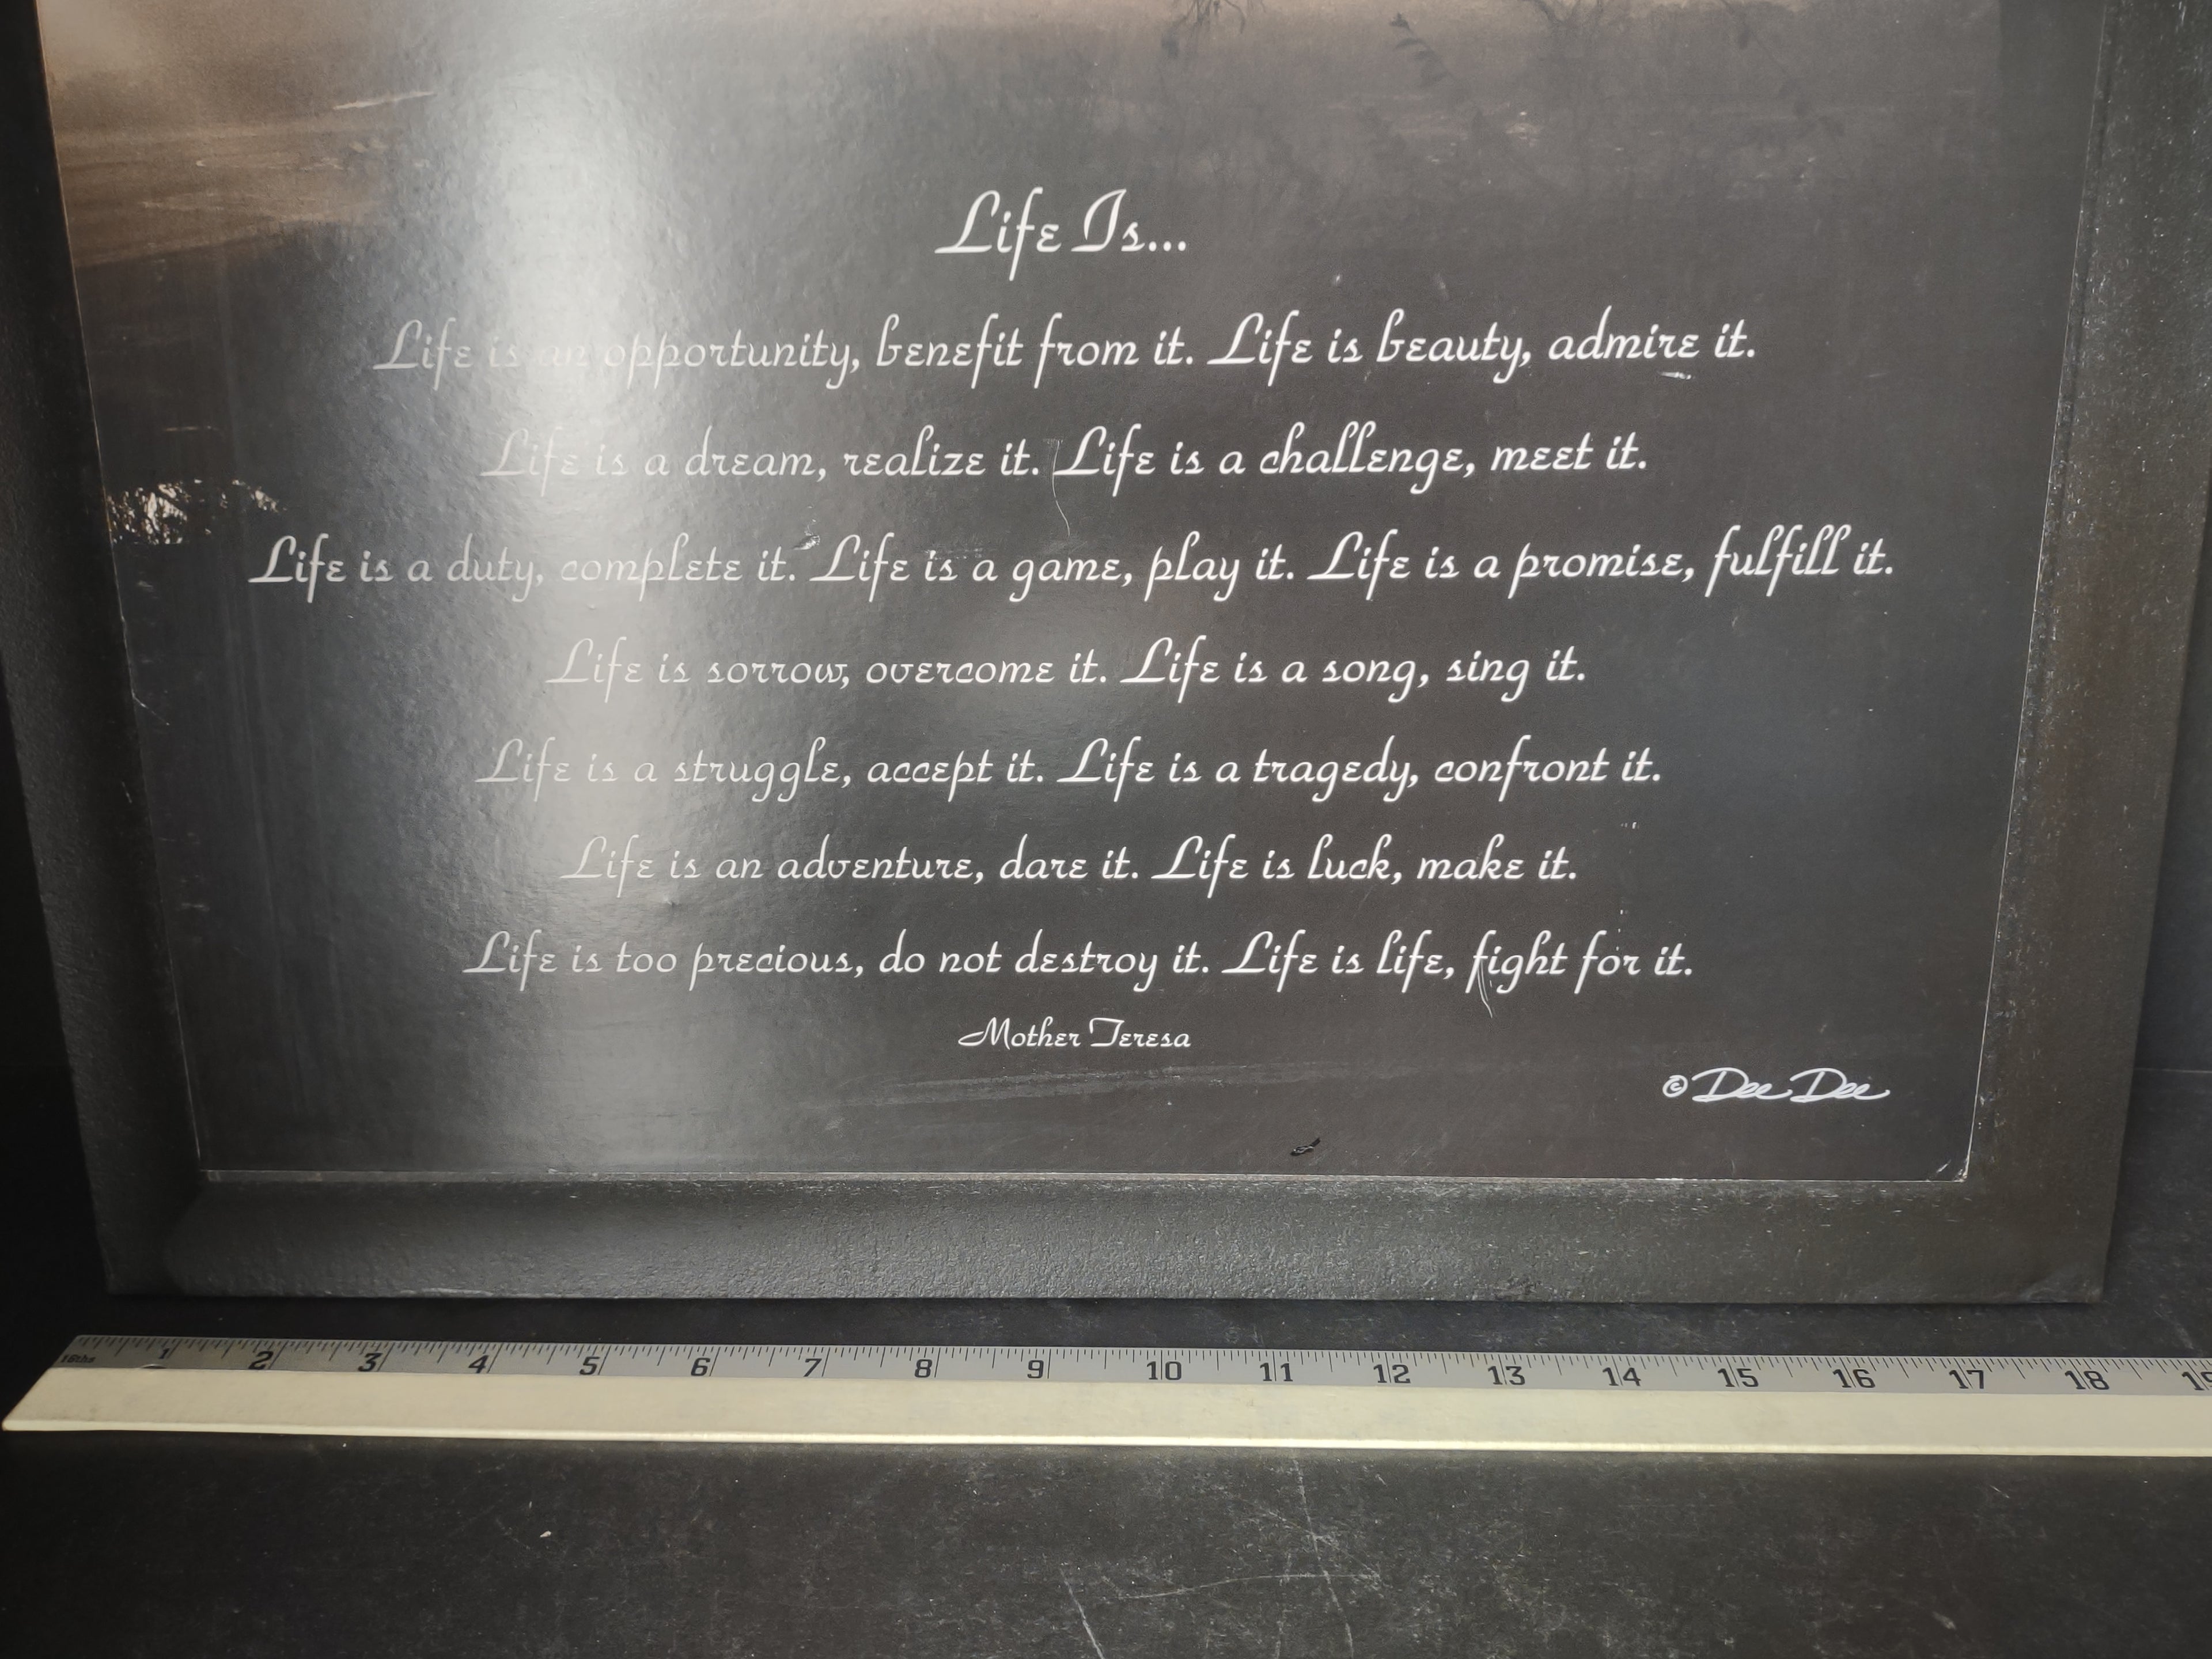 Life Is...
Life is an opportunity, benefit from it. Life is beauty, admire it.
Life is a dream, realize it. Life is a challenge, meet it.
Life is a duty, complete it. Life is a game, play it. Life is a promise, fulfill it.
Life is sorrow, overcome it. Life is a song, sing it.
Life is a struggle, accept it. Life is a tragedy, confront it.
Life is an adventure, dare it. Life is luck, make it.
Life is too precious, do not destroy it. Life is life, fight for it.
Mother Teresa
© Dee Dee
16ths 1 2 3 4 5 6 7 8 9 10 11 12 13 14 15 16 17 18 19